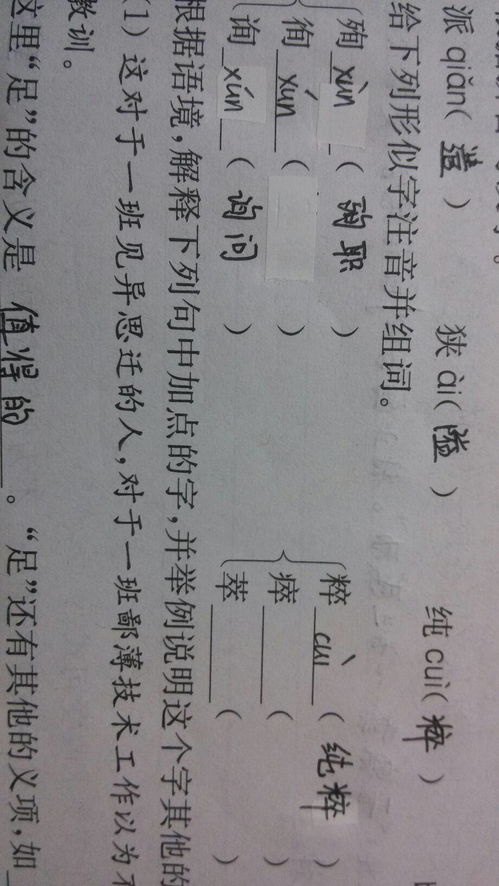 派 qiǎn(遣) 狭 ài(隘) 纯 cuì(粹)
给下列形似字注音并组词。
殉 xùn (殉职) 粹 cuì (纯粹)
徇 xún ( ) 瘁 ( )
询 xún (询问) 萃 ( )
根据语境,解释下列句中加点的字,并举例说明这个字其他的
(1) 这对于一班见异思迁的人,对于一班鄙薄技术工作以为不
教训。
这里“足”的含义是 值得的 。“足”还有其他的义项,如